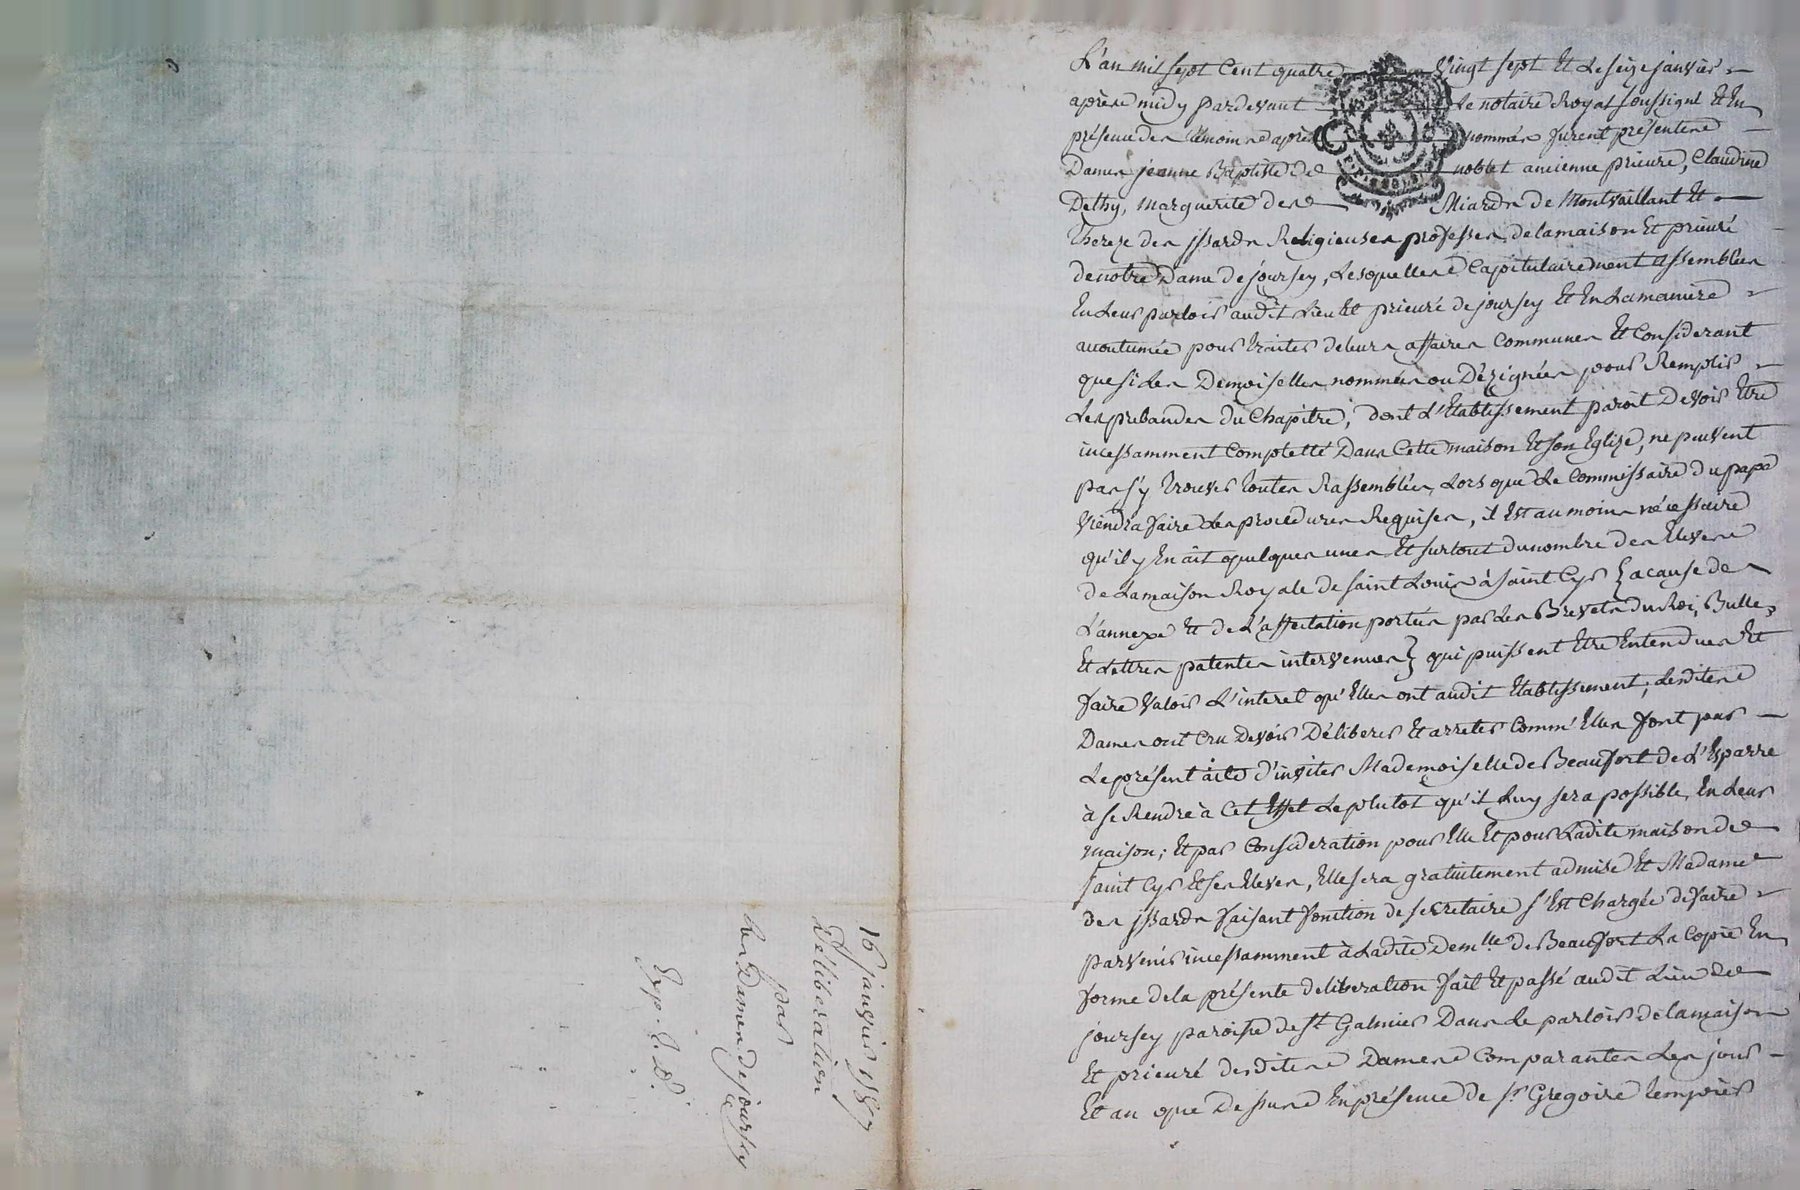 L'an mil sept Cent quatre Vingt sept Et Le seize janvier
après midy pardevant Le notaire Royal soussigné Et En
présence des témoins après nommés furent présentes
Dames jeanne Baptiste de noblet ancienne prieure, Claudine
Dethy, marguerite des Miards de Montvaillant Et
Thereze des jssards Religieuses professes de la maison Et prieuré
de notre Dame de joursey, Lesquelles Capitulairement assemblées
En Leur parloir audit Lieu Et prieuré de joursey Et En La manière
acoutumée pour traiter de leurs affaires Communes Et Considerant
que si Les Demoiselles nommées ou Dézignées pour Remplir
Les prebandes du Chapitre, dont L'Etablissement paroit Devoir Etre
incessamment Completté Dans Cette maison Et son Eglise, ne peuvent
pas s'y trouver toutes Rassemblées, Lors que Le Commissaire du pape
Viendra faire Les procedures Requises, il Est au moins nécessaire
qu'il y En ait quelques unes Et surtout du nombre des Eleves
de La maison Royale de saint Louis à saint Cyr { a cause de
L'annexe Et de L'affectation portées par Les Brevets du Roi, Bulles
Et Lettres patentes intervenues } qui puissent Etre Entendues Et
faire Valoir L'interet qu'Elles ont audit Etablissement; Lesdites
Dames ont Cru Devoir Déliberer Et arreter Comm' Elles font par
Le présent acte d'inviter Mademoiselle de Beaufort de L'Esparre
à se Rendre à Cet Effet Le plutot qu'il Luy sera possible, En Leur
maison; Et par Consideration pour Elle Et pour Ladite maison de
saint Cyr Et ses Eleves, Elle sera gratuitement admise Et Madame
des jssards faisant fonction de secretaire s'Est Chargée de faire
parvenir incessamment à Ladite Dem.lle de Beaufort La Copie En
forme de la présente deliberation fait Et passé audit Lieu de
joursey paroisse de St Galmier Dans Le parloir de la maison
Et prieuré desdites Dames Comparantes Les jour
Et an que Dessus En présence de sr Gregoire
16 janvier 1787
Déliberation
par
Les Dames de joursey
Exp.